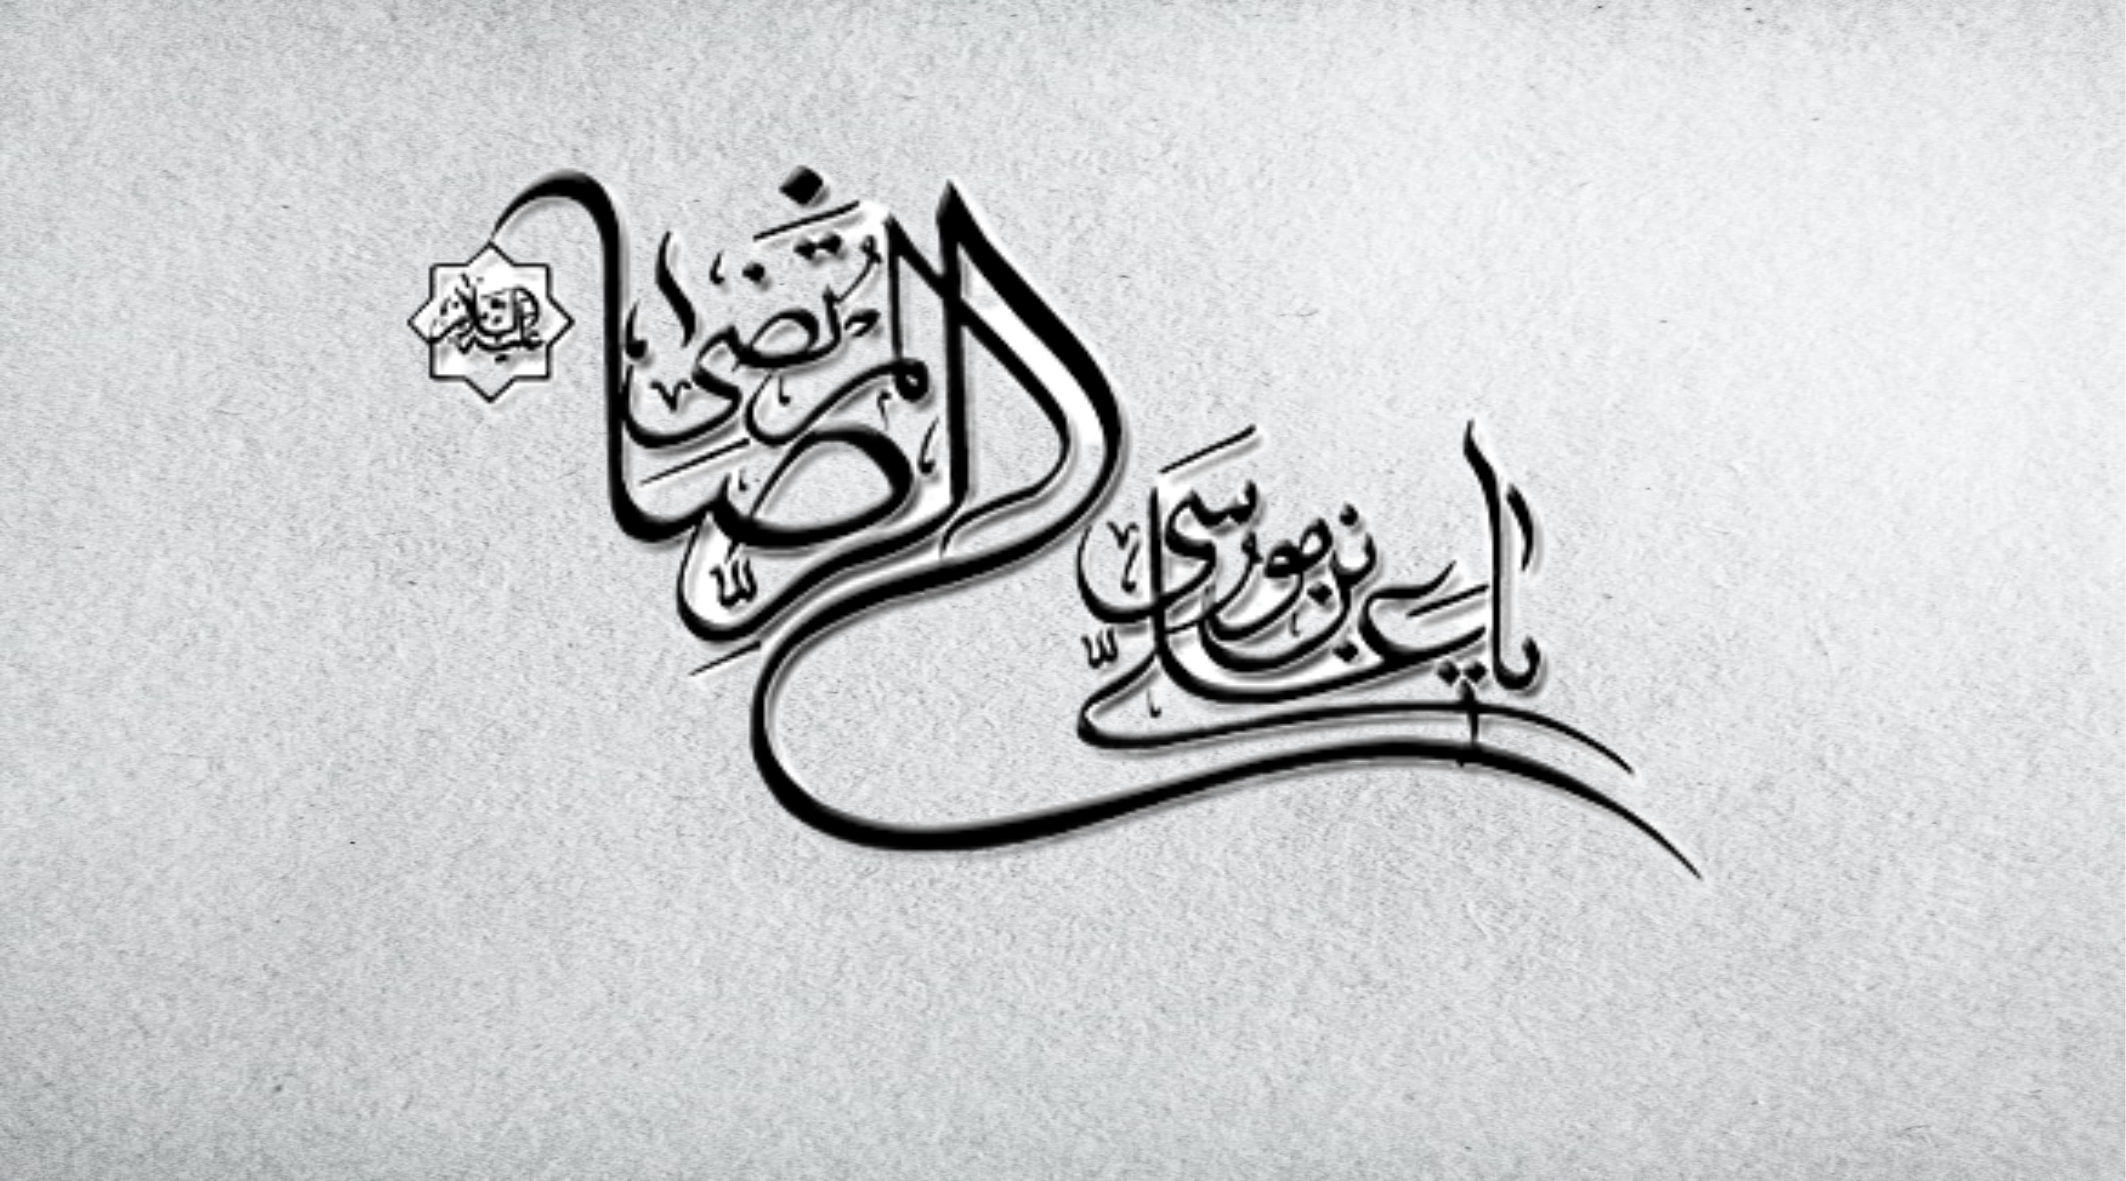 یا علی بن موسی الرضا المرتضی
علیه السلام